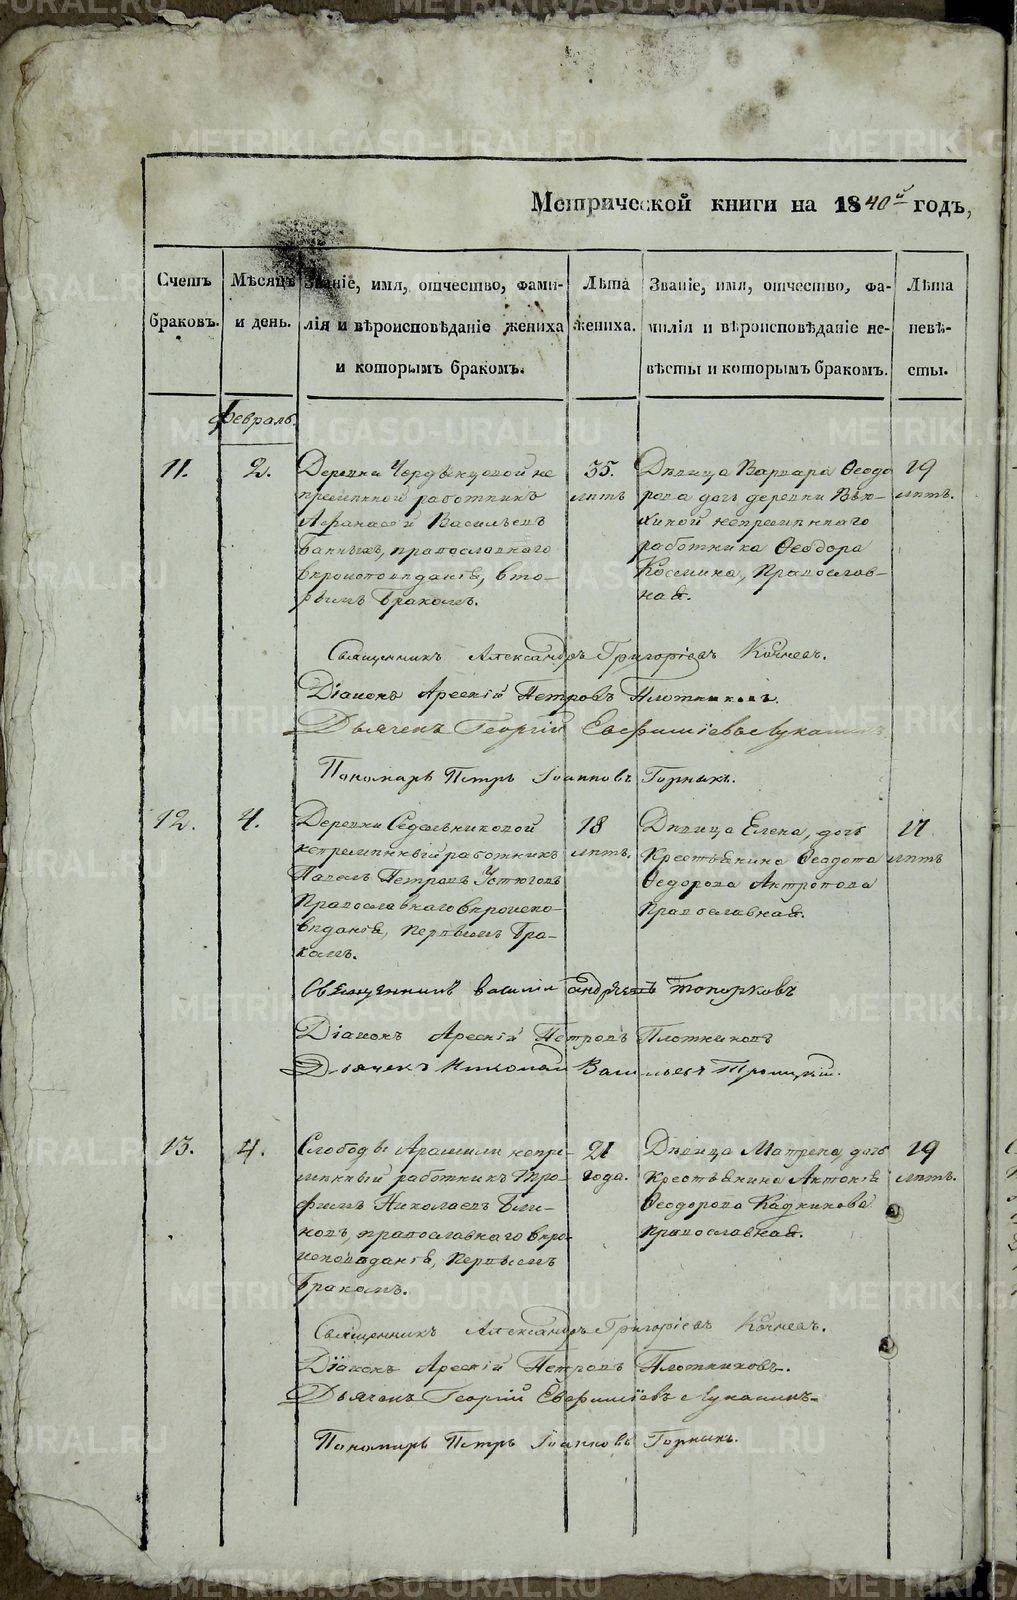 Метрической книги на 1840й годъ,
Счетъ браковъ.
Мѣсяцъ и день.
Званіе, имя, отчество, фами-
лія и вѣроисповѣданіе жениха
и которымъ бракомъ.
Лѣта
жениха.
Званіе, имя, отчество, фа-
милія и вѣроисповѣданіе не-
вѣсты и которымъ бракомъ.
Лѣта
невѣ-
сты.
Февраль.
11.
2.
Деревни не
премѣнной работникъ
Афанасей Васильевъ
Банныхъ, православнаго
вѣроисповѣданія, вто-
рымъ бракомъ.
35.
лѣтъ
Дѣвица Варвара Ѳеодо
рова дочь деревни
непремѣннаго
работника Ѳеодора
Космина, Православ-
ная.
19
лѣтъ.
Священникъ Александръ Григоріевъ Кочневъ.
Діаконъ Арсеній Петровъ Плотниковъ.
Дьячекъ Георгій Евфиміевъ Лукашинъ
Пономарь Петръ Іоанновъ Горныхъ.
12.
4.
Деревни Седельниковой
непремѣнный работникъ
Павелъ Петровъ Устюговъ
Православнаго вѣроиспо-
вѣданія, первымъ бра-
комъ.
18
лѣтъ,
Дѣвица Елена, дочь
Крестьянина Ѳеодота
Ѳедорова Антропова
Православная.
17
лѣтъ
Священникъ Василій Андреевъ Топорковъ
Діаконъ Арсеній Петровъ Плотниковъ
Дьячекъ Николай Васильевъ Троицкій.
13.
4.
Слободы Арамили непре-
мѣнный работникъ Тро-
фимъ Николаевъ Бли-
новъ, православнаго вѣро-
исповѣданія, первымъ
бракомъ.
21
года.
Дѣвица Матрена, дочь
Крестьянина Антонія
Ѳеодорова Кадникова
Православная.
19
лѣтъ.
Священникъ Александръ Григоріевъ Кочневъ.
Діаконъ Арсеній Петровъ Плотниковъ.
Дьячекъ Георгій Евфиміевъ Лукашинъ.
Пономарь Петръ Іоанновъ Горныхъ.
METRIKI.GASO-URAL.RU